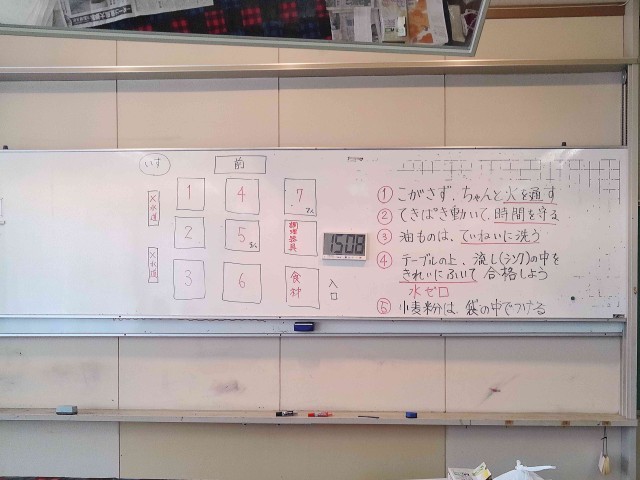 いす
前
1 4 7
2 5 調理器具
3 6 食材
水道
水道
入口
15:08
① こがさず、ちゃんと火を通す
② てきぱき動いて、時間を守る
③ 油ものは、ていねいに洗う
④ テーブルの上、流し(シンク)の中を
きれいにふいて 合格しよう
水ゼロ
⑤ 小麦粉は 袋の中でつける